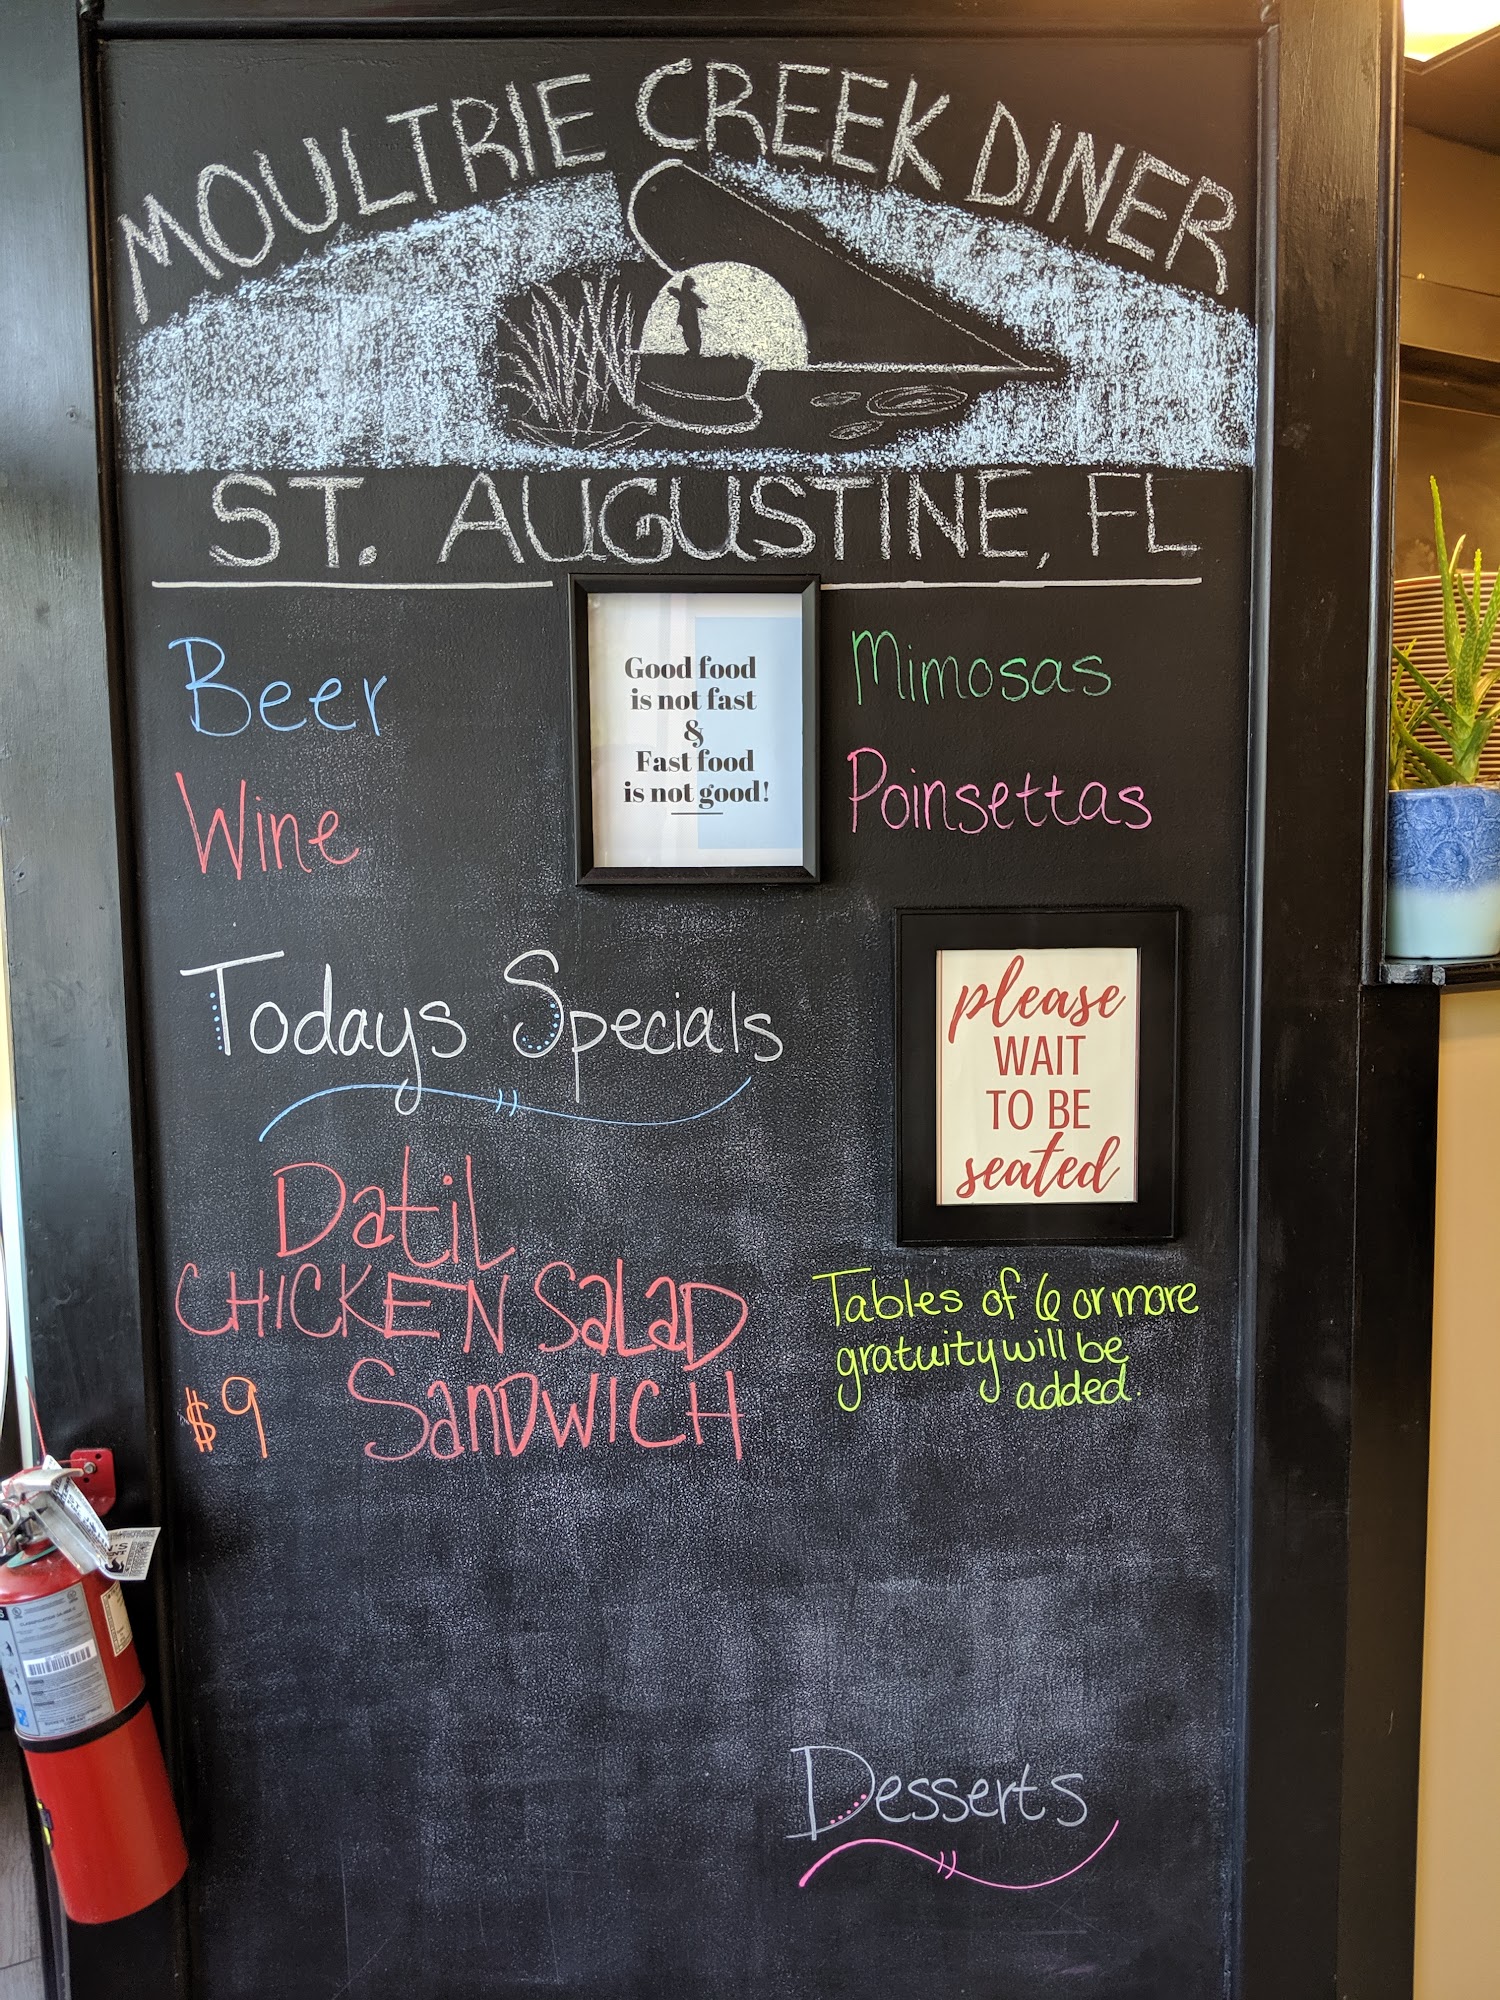 MOULTRIE CREEK DINER
ST. AUGUSTINE, FL
Beer
Wine
Good food
is not fast
&
Fast food
is not good!
Mimosas
Poinsettas
Todays Specials
please
WAIT
TO BE
seated
Datil
CHICKEN Salad
$9 Sandwich
Tables of 6 or more
gratuity will be
added.
Desserts